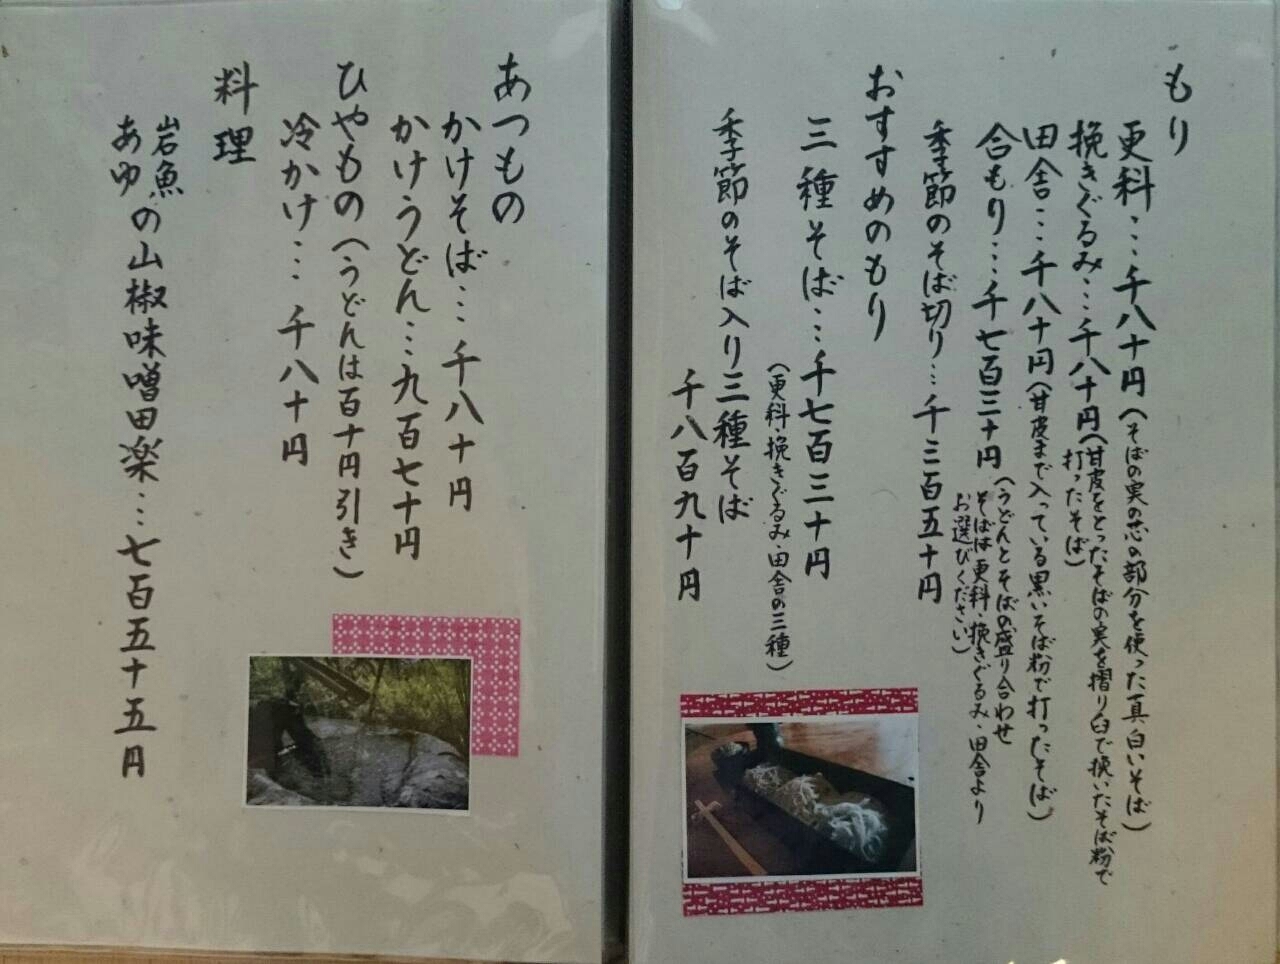 もり
更科…千八十円(そばの実の芯の部分を使った真白いそば)
挽きぐるみ…千八十円(甘皮をとったそばの実を摺り臼で挽いたそば粉で
打ったそば)
田舎…千八十円(甘皮まで入っている黒いそば粉で打ったそば)
合もり…千七百三十円(うどんとそばの盛り合わせ
そばは更科・挽きぐるみ・田舎より
お選びください)
季節のそば切り…千三百五十円
おすすめのもり
三種そば…千七百三十円
(更科・挽きぐるみ・田舎の三種)
季節のそば入り三種そば
千八百九十円
あつもの
かけそば…千八十円
かけうどん…九百七十円
ひやもの(うどんは百十円引き)
冷かけ…千八十円
料理
岩魚
あゆの山椒味噌田楽…七百五十五円